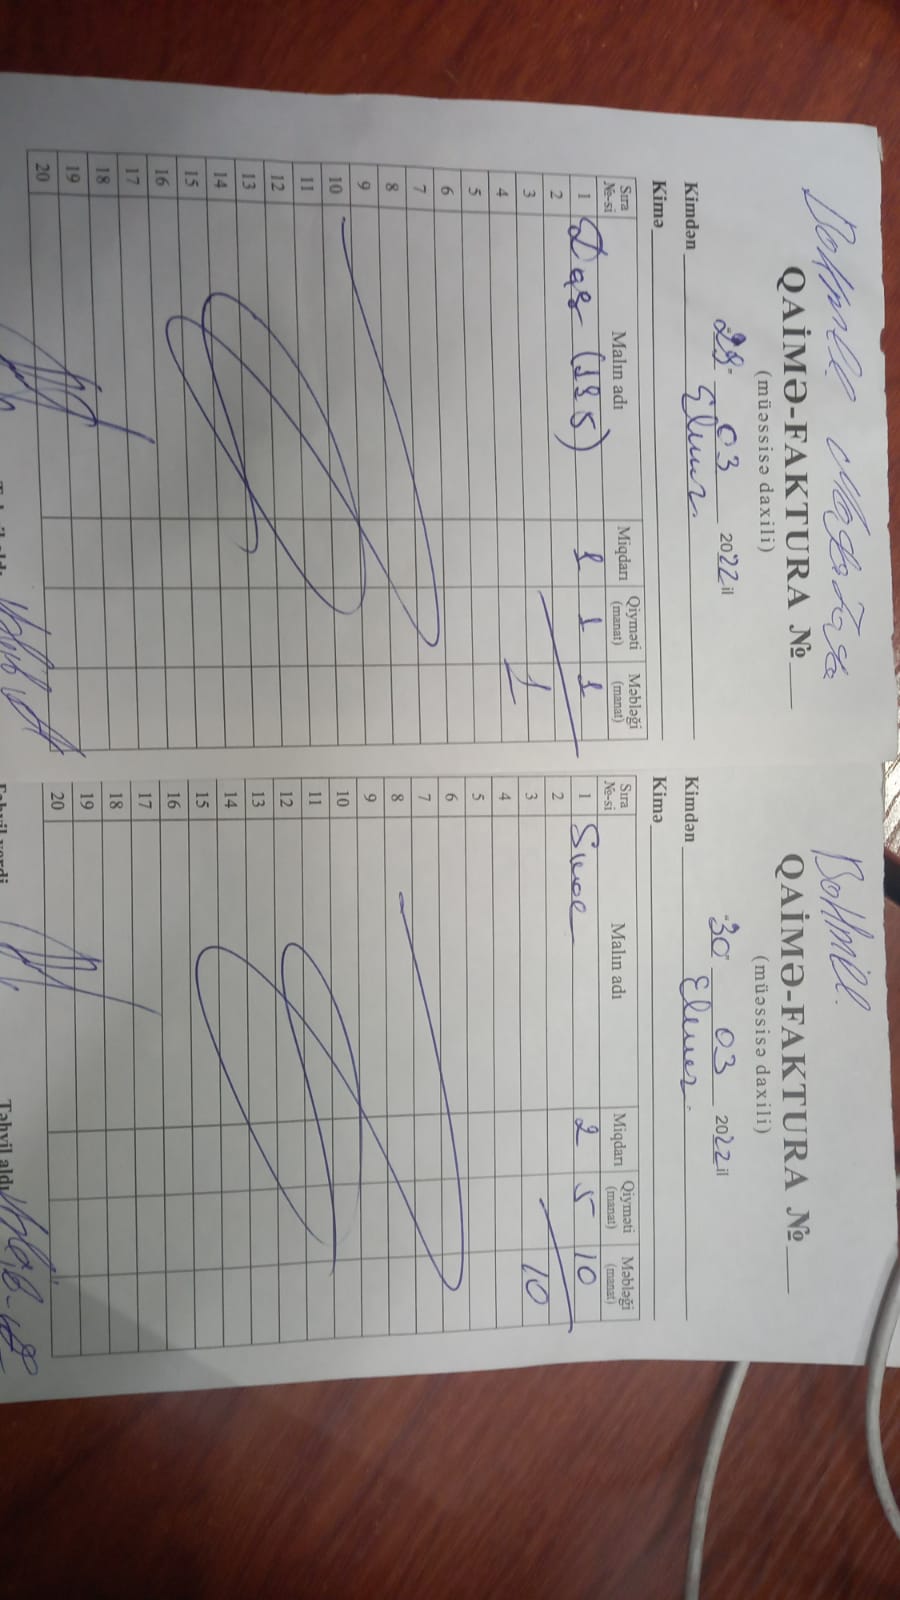 QAİMƏ-FAKTURA №
(müəssisə daxili)
28 03 2022 il
Kimdən Elmer.
Kimə
Sıra №-si Malın adı Miqdarı Qiyməti (manat) Məbləği (manat)
1 Daş (125) 1 1 1
2
3 1
4
5
6
7
8
9
10
11
12
13
14
15
16
17
18
19
20
QAİMƏ-FAKTURA №
(müəssisə daxili)
30 03 2022 il
Kimdən Elmer.
Kimə
Sıra №-si Malın adı Miqdarı Qiyməti (manat) Məbləği (manat)
1 2 5 10
2
3 10
4
5
6
7
8
9
10
11
12
13
14
15
16
17
18
19
20
Təhvil verdi Təhvil aldı